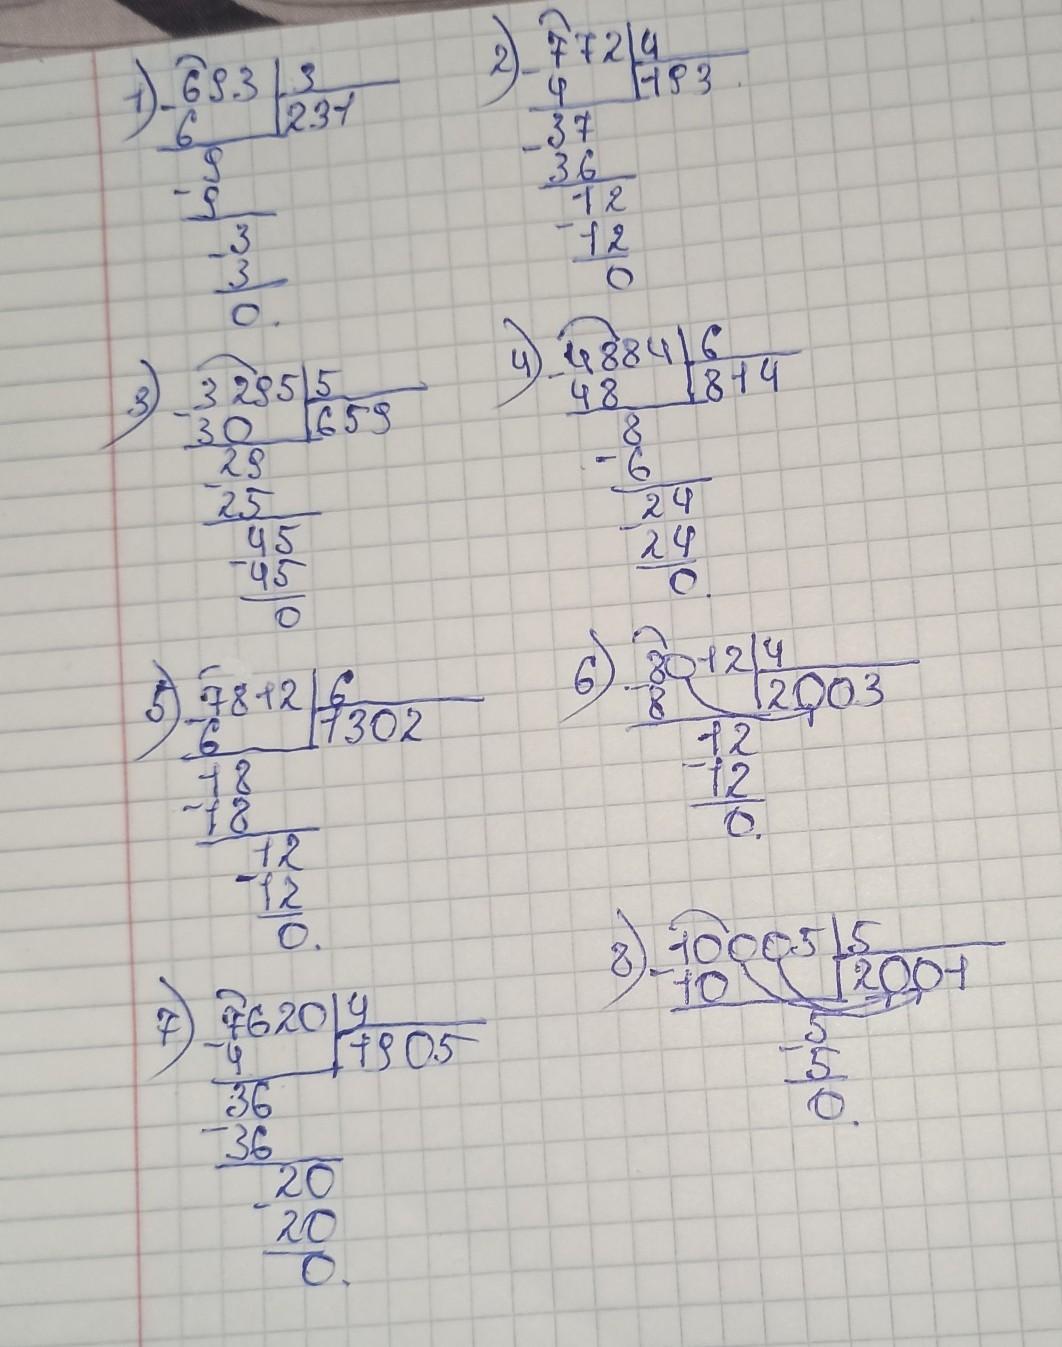 1) 693 3
- 6 231
9
- 9
- 3
3
0.
2) 772 4
- 4 193
- 37
36
12
- 12
0
3) 3295 5
- 30 659
29
- 25
45
- 45
0
4) 4884 6
- 48 814
8
- 6
24
- 24
0.
5) 7812 6
- 6 1302
18
- 18
12
- 12
0.
6) 8012 4
- 8 2003
12
- 12
0.
7) 7620 4
- 4 1905
36
- 36
20
- 20
0.
8) 10005 5
- 10 2001
5
- 5
0.